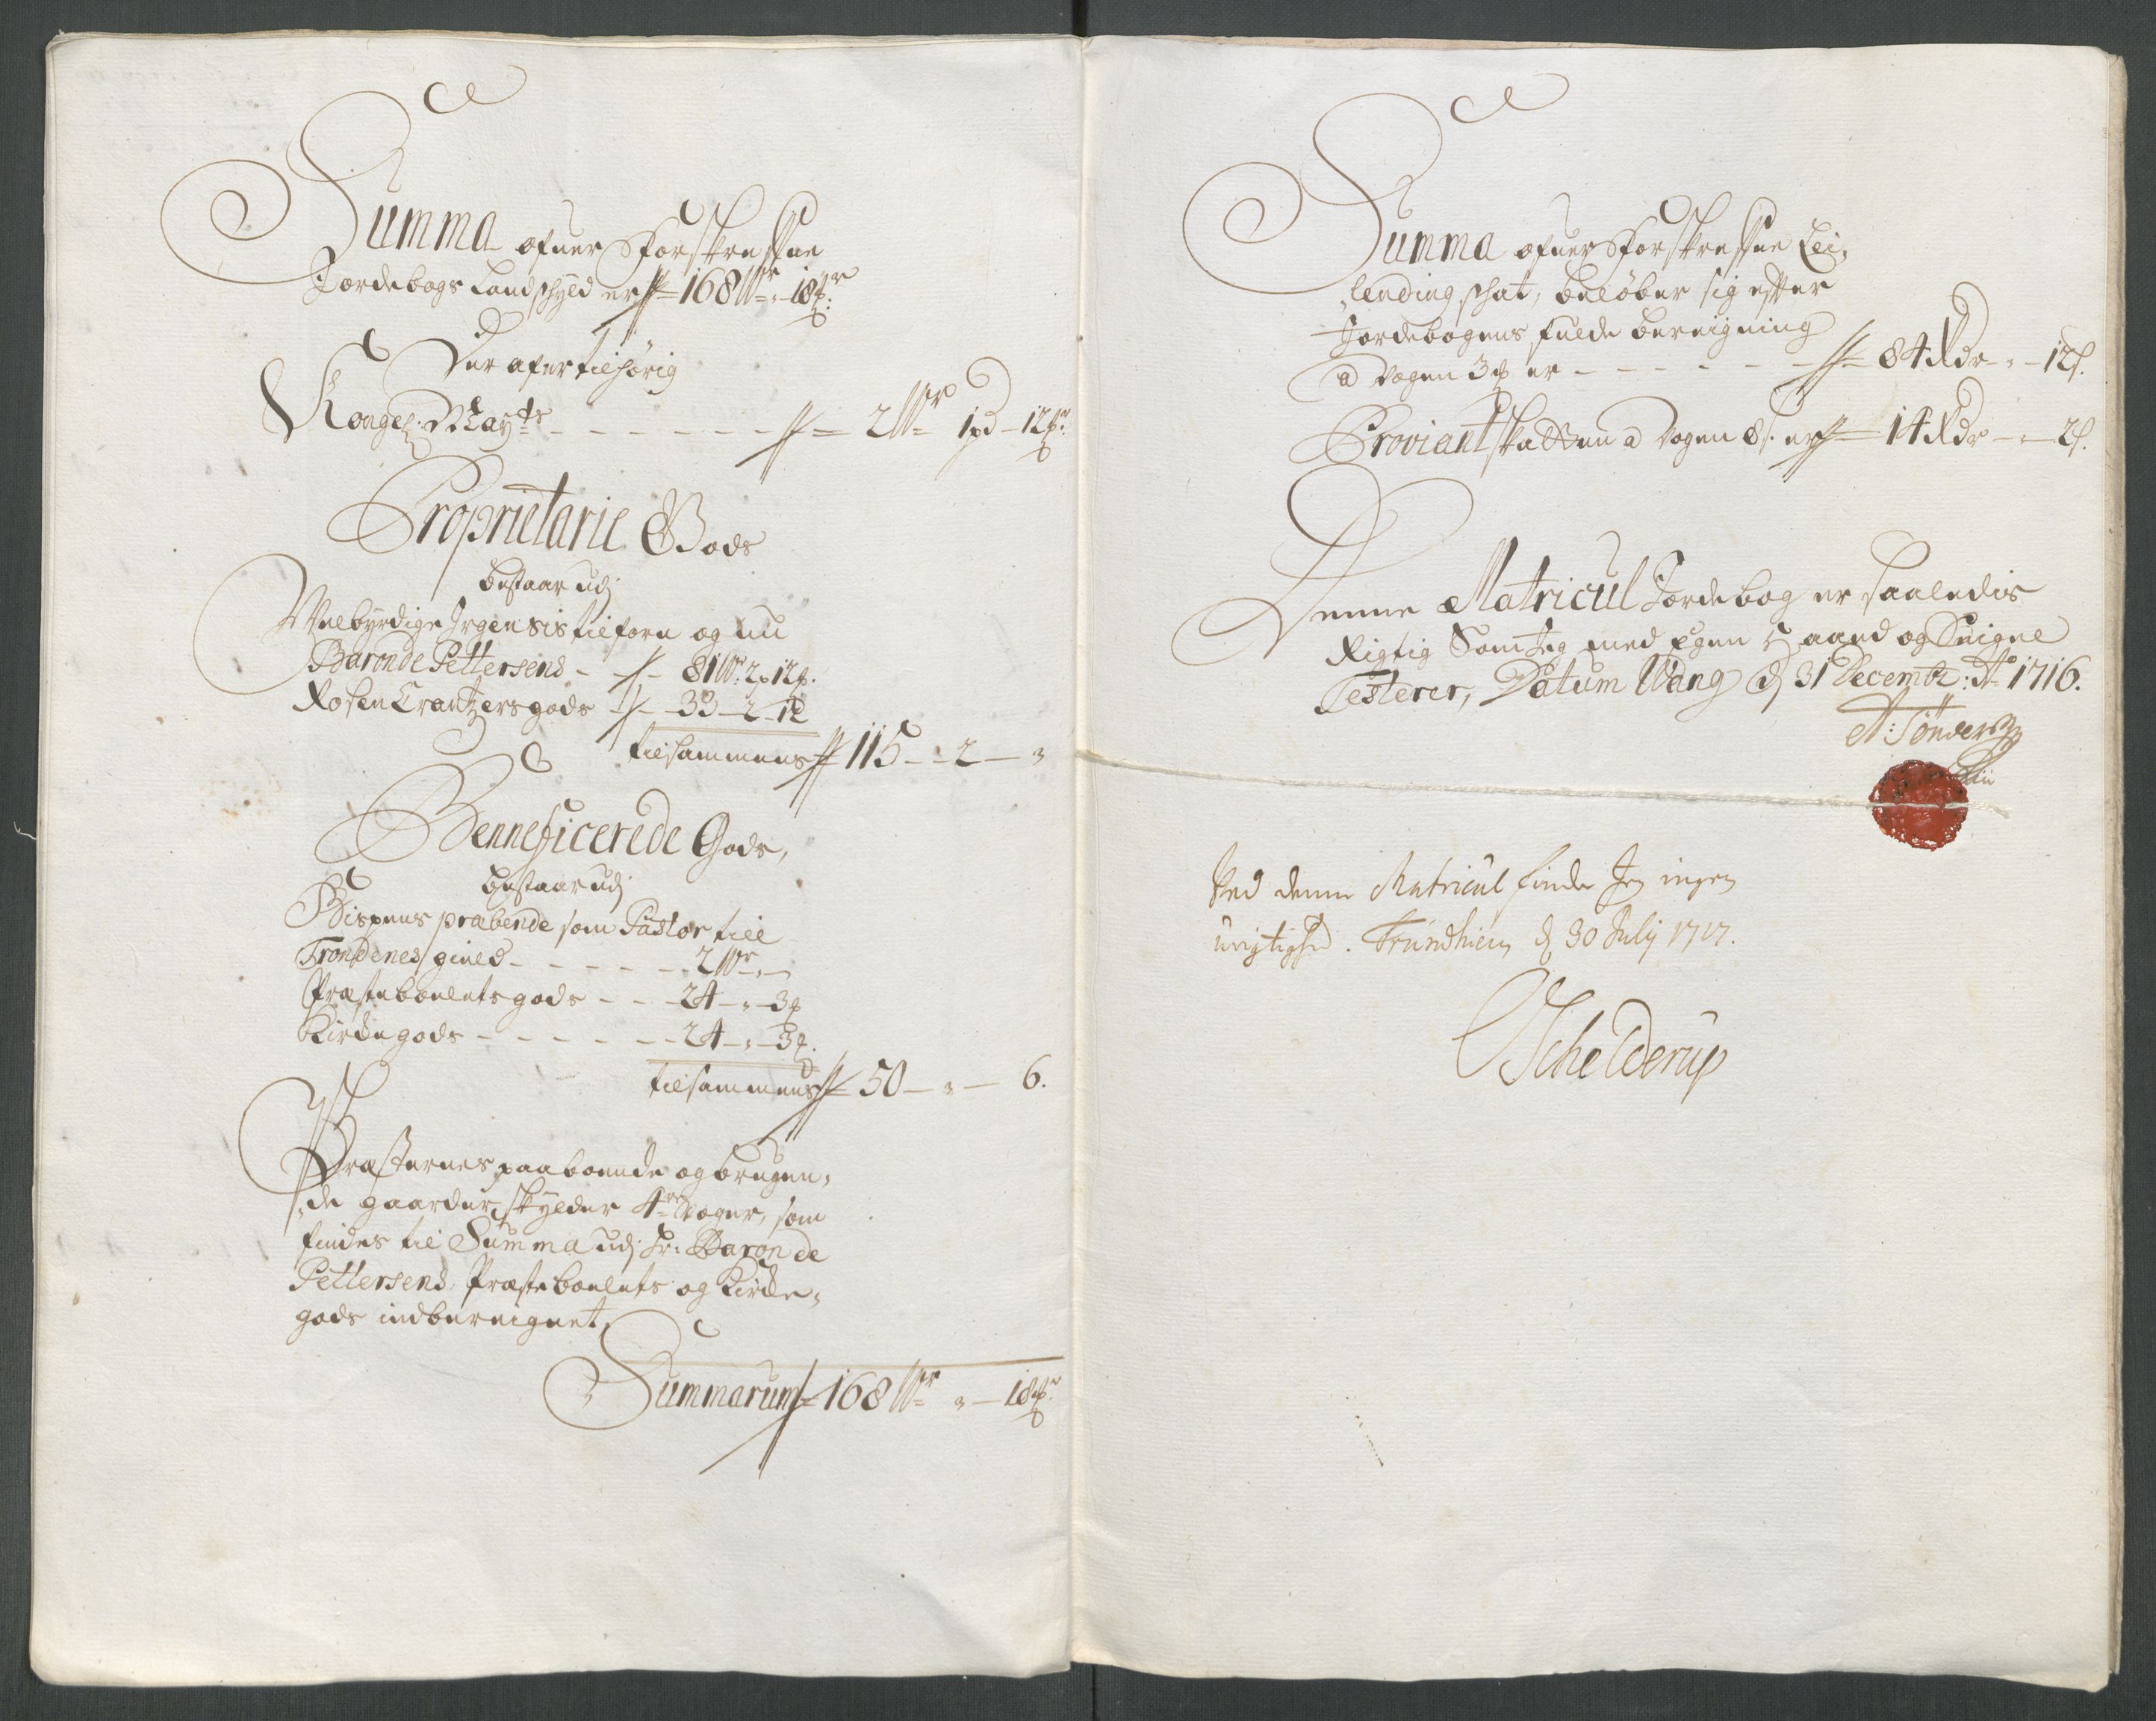 Summa ofuer Forskrefne
Jordebogs Landschyld er 168 W̃r „ 18 ℔r
Der afer tilhørig
Kongel: May:ts – – – – – – 2 W̃r 1 pd – 12 ℔r
Proprietarie Gods
bestaar udj
Velbyrdige Irgensis tilforn og nu
Baron de Pettersens – 81 W̃r: 2 p 12 ℔.
Rosen Crantzers gods – 33 – 2 – 12
tilsammens 115 – 2 – „
Benneficerede Gods,
bestaar udj
Bispens præbende som Pastor till
Trondenes gives – – – – – 2 W̃r „ –
Præsteboelets gods – – 24 – „ – 3 ℔
Kirke gods – – – – – – 24 – „ – 3 ℔.
tilsammens 50 – „ – 6.
Præsternes paaboende og brugen„
„de gaarder, skylder 4re Voger, som
findes til Summa udj Hr: Baron de
Pettersens, Præsteboelets og Kirke„
gods indbereignet,
Summarum 168 W̃r „ – 18 ℔r
Summa ofuer Forskrefne Lei„
„lending schat, beløber sig efter
Jordebogens fulde bereigning
a Vogen 3 ℔ er – – – – – – 84 Rdr – „ – 12 s.
Proviant skatten a Vogen 8 s. er 14 Rdr – „ – 2 s.
Denne Matricul Jordebog er saaledis
Rigtig Som Jeg med Egen Haand og Seigne
Testerer, Datum Wang d 31 Decembr: Ao 1716.
A: Tönder
Ved denne Matricul finder Jeg ingen
urigtighed. Trundhiem d 30 Julij 1717.
Schelderup